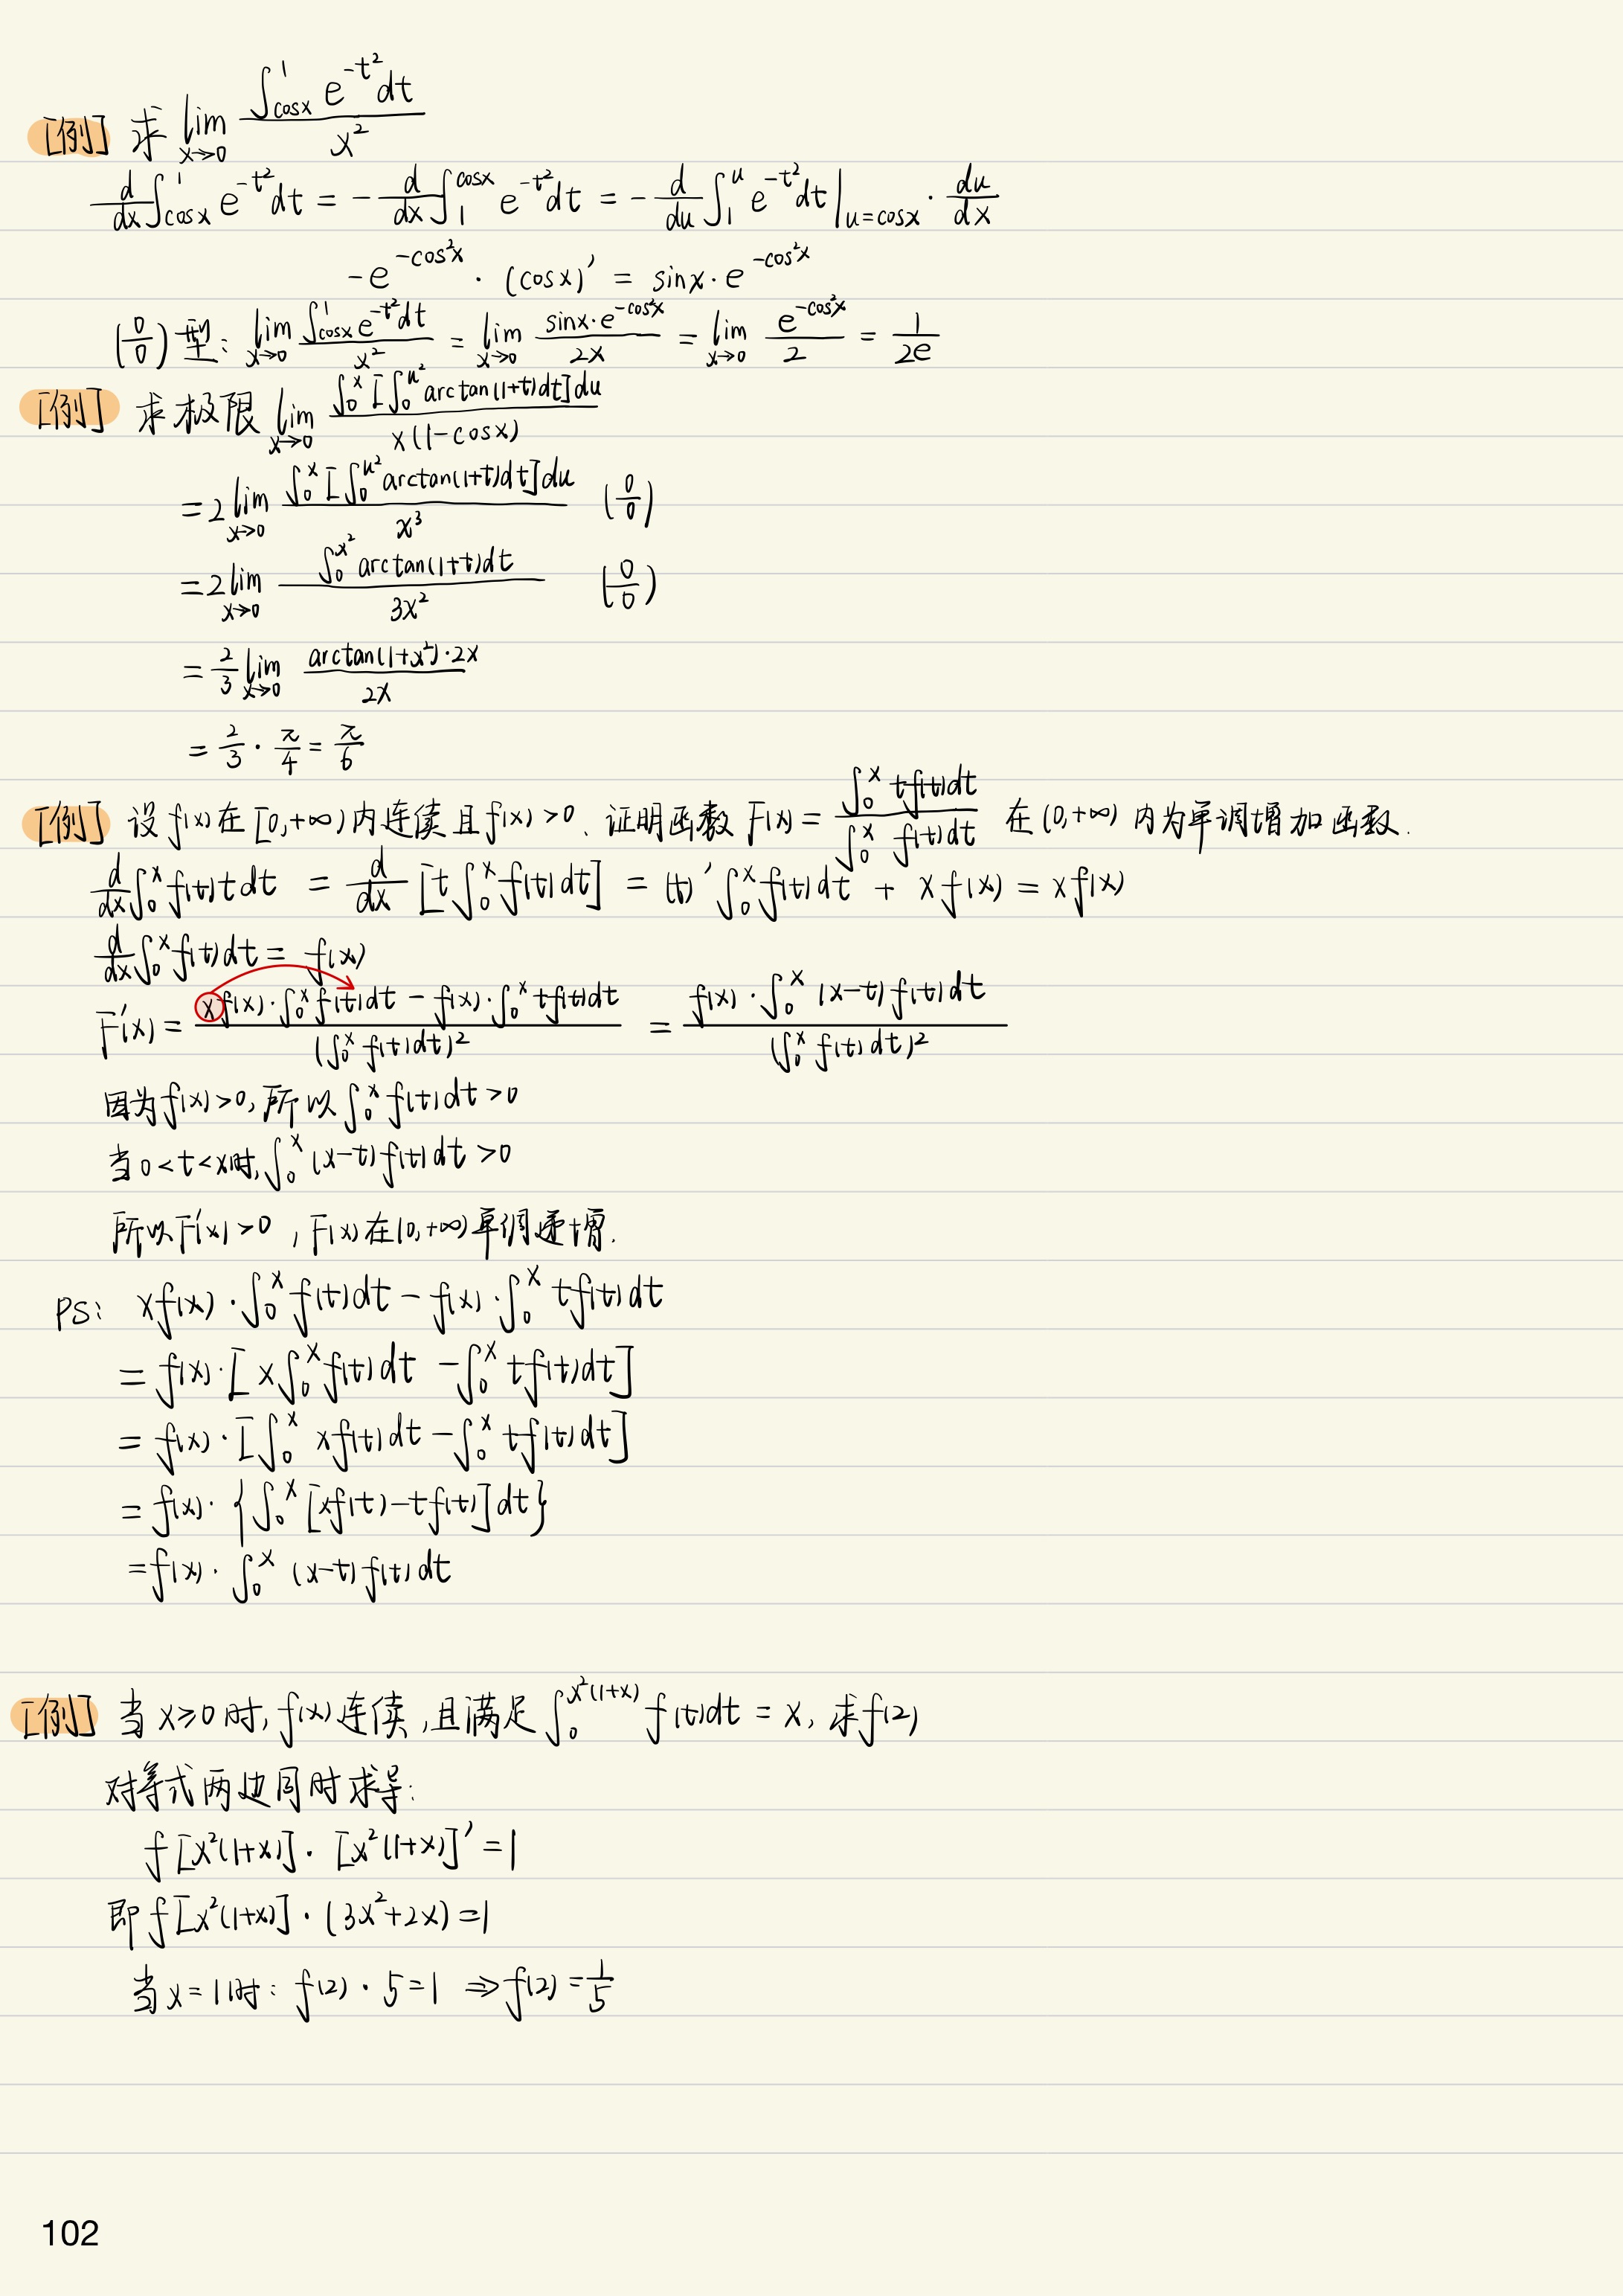 [例] 求 $\lim_{x\to 0} \frac{\int_{\cos x}^{1} e^{-t^2}dt}{x^2}$
$\frac{d}{dx}\int_{\cos x}^{1} e^{-t^2}dt = -\frac{d}{dx}\int_{1}^{\cos x} e^{-t^2}dt = -\frac{d}{du}\int_{1}^{u} e^{-t^2}dt\Big|_{u=\cos x} \cdot \frac{du}{dx}$
$-e^{-\cos^2 x} \cdot (\cos x)' = \sin x \cdot e^{-\cos^2 x}$
$(\frac{0}{0})$ 型: $\lim_{x\to 0} \frac{\int_{\cos x}^{1} e^{-t^2}dt}{x^2} = \lim_{x\to 0} \frac{\sin x \cdot e^{-\cos^2 x}}{2x} = \lim_{x\to 0} \frac{e^{-\cos^2 x}}{2} = \frac{1}{2e}$
[例] 求极限 $\lim_{x\to 0} \frac{\int_0^x [\int_0^{u^2} \arctan(1+t)dt]du}{x(1-\cos x)}$
$= 2\lim_{x\to 0} \frac{\int_0^x [\int_0^{u^2} \arctan(1+t)dt]du}{x^3} \quad (\frac{0}{0})$
$= 2\lim_{x\to 0} \frac{\int_0^{x^2} \arctan(1+t)dt}{3x^2} \quad (\frac{0}{0})$
$= \frac{2}{3}\lim_{x\to 0} \frac{\arctan(1+x^2)\cdot 2x}{2x}$
$= \frac{2}{3} \cdot \frac{\pi}{4} = \frac{\pi}{6}$
[例] 设 f(x) 在 [0,+∞) 内连续且 f(x)>0、证明函数 $F(x) = \frac{\int_0^x tf(t)dt}{\int_0^x f(t)dt}$ 在 (0,+∞) 内为单调增加函数.
$\frac{d}{dx}\int_0^x f(t)tdt = \frac{d}{dx}[t\int_0^x f(t)dt] = (t)'\int_0^x f(t)dt + xf(x) = xf(x)$
$\frac{d}{dx}\int_0^x f(t)dt = f(x)$
$F'(x) = \frac{xf(x)\cdot\int_0^x f(t)dt - f(x)\cdot\int_0^x tf(t)dt}{(\int_0^x f(t)dt)^2} = \frac{f(x)\cdot\int_0^x (x-t)f(t)dt}{(\int_0^x f(t)dt)^2}$
因为 f(x)>0, 所以 $\int_0^x f(t)dt > 0$
当 0<t<x 时, $\int_0^x (x-t)f(t)dt > 0$
所以 F'(x)>0 , F(x) 在 (0,+∞) 单调递增.
PS: $xf(x)\cdot\int_0^x f(t)dt - f(x)\cdot\int_0^x tf(t)dt$
$= f(x)\cdot[x\int_0^x f(t)dt - \int_0^x tf(t)dt]$
$= f(x)\cdot[\int_0^x xf(t)dt - \int_0^x tf(t)dt]$
$= f(x)\cdot\{\int_0^x [xf(t)-tf(t)]dt\}$
$= f(x)\cdot\int_0^x (x-t)f(t)dt$
[例] 当 x≥0 时, f(x) 连续 ,且满足 $\int_0^{x^2(1+x)} f(t)dt = x$, 求 f(2)
对等式两边同时求导:
$f[x^2(1+x)]\cdot[x^2(1+x)]' = 1$
即 $f[x^2(1+x)]\cdot(3x^2+2x) = 1$
当 x=1 时: $f(2)\cdot 5 = 1 \Rightarrow f(2) = \frac{1}{5}$
102